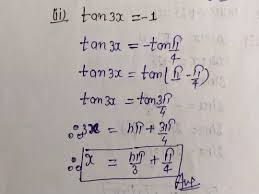 (ii) tan3x = -1
tan3x = -tan π/4
tan3x = tan(π - π/4)
tan3x = tan 3π/4
∴ 3x = nπ + 3π/4
∴ x = nπ/3 + π/4
Ans